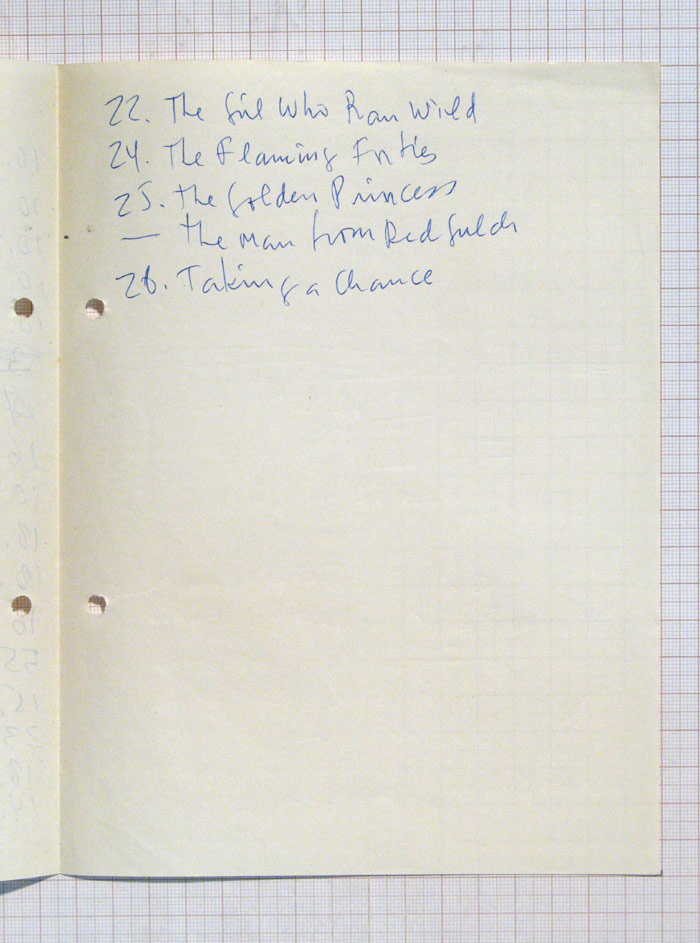 22. The Girl Who Ran Wild
24. The Flaming Forties
25. The Golden Princess
— The Man from Red Gulch
28. Taking a Chance